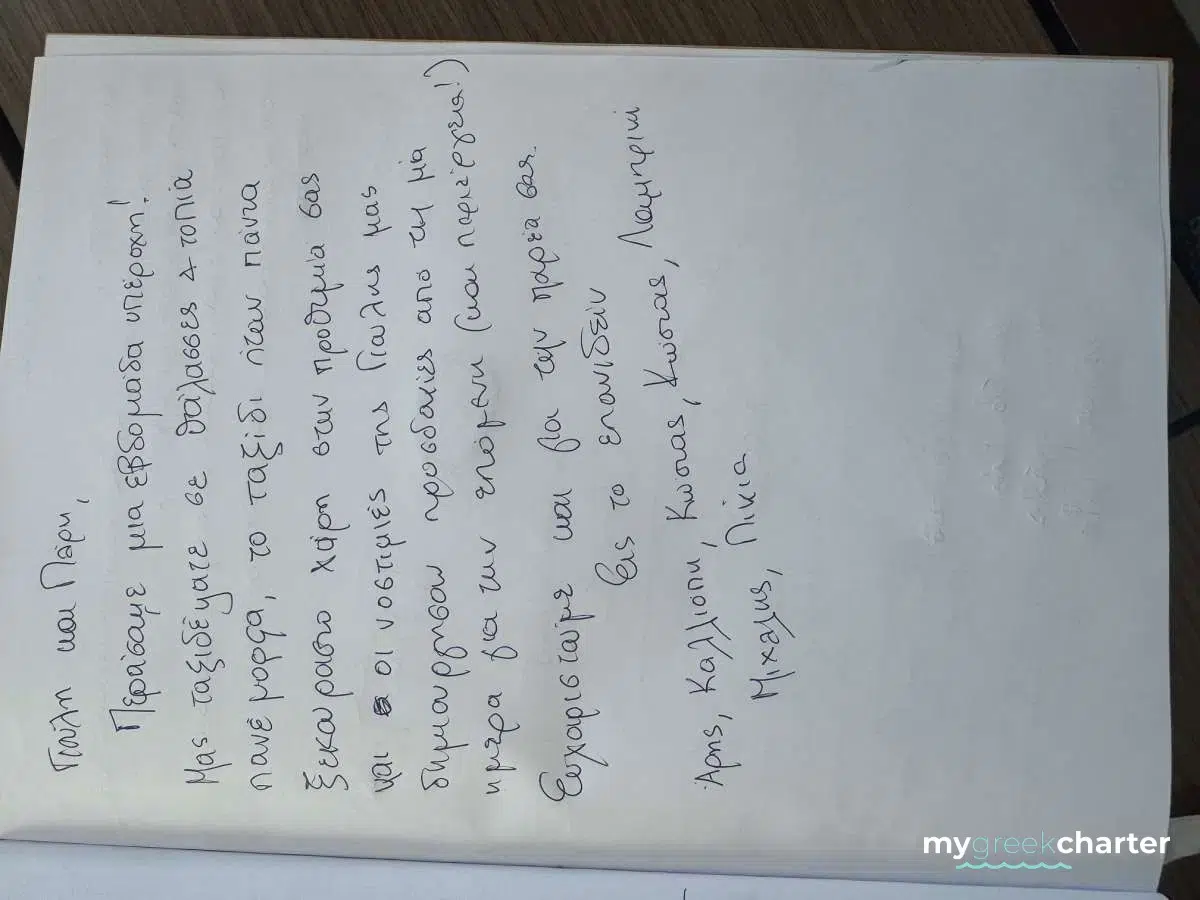 Γιούλη και Πάρη,
Περάσαμε μια εβδομάδα υπέροχη!
Μας ταξιδέψατε σε θάλασσες & τοπία
πανέμορφα, το ταξίδι ήταν πάντα
ξεκούραστο χάρη στην προθυμία σας
και οι νοστιμιές της Γιούλης μας
δημιούργησαν προσδοκίες από τη μία
ημέρα για την επόμενη (και περιέργεια!)
Ευχαριστούμε και για την παρέα σας.
Εις το επανιδείν
Άρης, Καλλιόπη, Κώστας, Κώστας, Λαμπρινή
Μιχάλης,
mygreekcharter